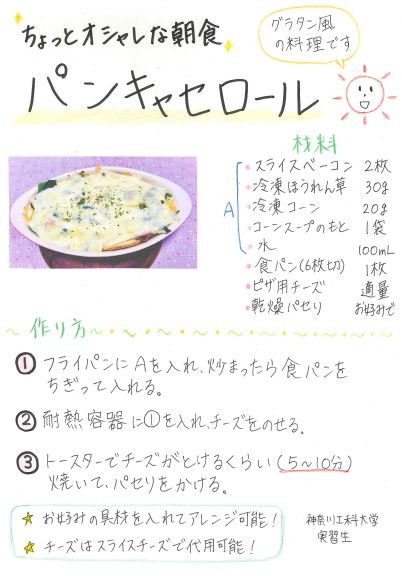 ちょっとオシャレな朝食
グラタン風
の料理です
パンキャセロール
材料
A
スライスベーコン 2枚
冷凍ほうれん草 30g
冷凍コーン 20g
コーンスープのもと 1袋
水 100mL
食パン(6枚切) 1枚
ピザ用チーズ 適量
乾燥パセリ お好みで
～作り方～
① フライパンにAを入れ、炒まったら食パンを
ちぎって入れる。
② 耐熱容器に①を入れ、チーズをのせる。
③ トースターでチーズがとけるくらい(5～10分)
焼いて、パセリをかける。
☆ お好みの具材を入れてアレンジ可能!
☆ チーズはスライスチーズで代用可能!
神奈川工科大学
実習生